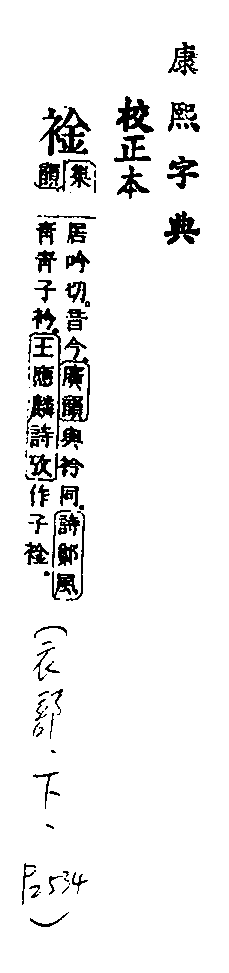 康熙字典
校正本
集韻
居吟切。音今。廣韻與衿同。詩鄭風
青青子衿。王應麟詩攷作子。
(衣部、下、P2534)